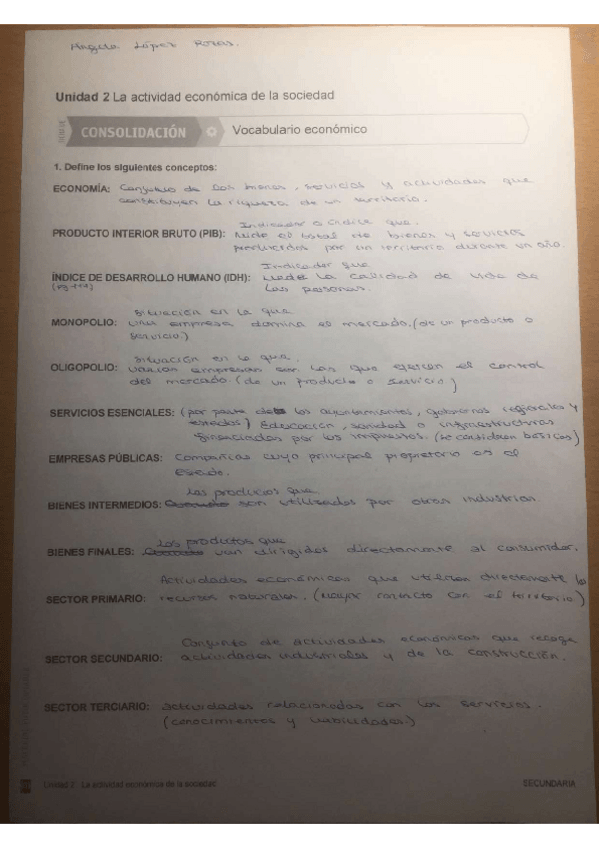 Angela López Rozas.
Unidad 2 La actividad económica de la sociedad
CONSOLIDACIÓN Vocabulario económico
1. Define los siguientes conceptos:
ECONOMÍA: Conjunto de los bienes, servicios y actividades que
constituyen la riqueza de un territorio.
Indicador o índice que
PRODUCTO INTERIOR BRUTO (PIB): mide el total de bienes y servicios
producidos por un territorio durante un año.
Indicador que
ÍNDICE DE DESARROLLO HUMANO (IDH): mide la calidad de vida de
las personas.
situación en la que
MONOPOLIO: una empresa domina el mercado.(de un producto o
servicio.)
situación en la que
OLIGOPOLIO: varias empresas son las que ejercen el control
del mercado (de un producto o servicio)
SERVICIOS ESENCIALES: (por parte de los ayuntamientos, gobiernos regionales y
estados) Educación, sanidad o infraestructuras
financiadas por los impuestos. (se consideran básicos)
EMPRESAS PÚBLICAS: Compañías cuyo principal propietario es el
estado.
Los productos que
BIENES INTERMEDIOS: son utilizados por otras industrias.
Los productos que
BIENES FINALES: van dirigidos directamente al consumidor.
Actividades económicas que utilizan directamente los
SECTOR PRIMARIO: recursos naturales. (Mayor contacto con el territorio)
Conjunto de actividades económicas que recoge
SECTOR SECUNDARIO: actividades industriales y de la construcción.
SECTOR TERCIARIO: actividades relacionadas con los servicios.
(conocimientos y habilidades.)
Unidad 2 La actividad económica de la sociedad
SECUNDARIA